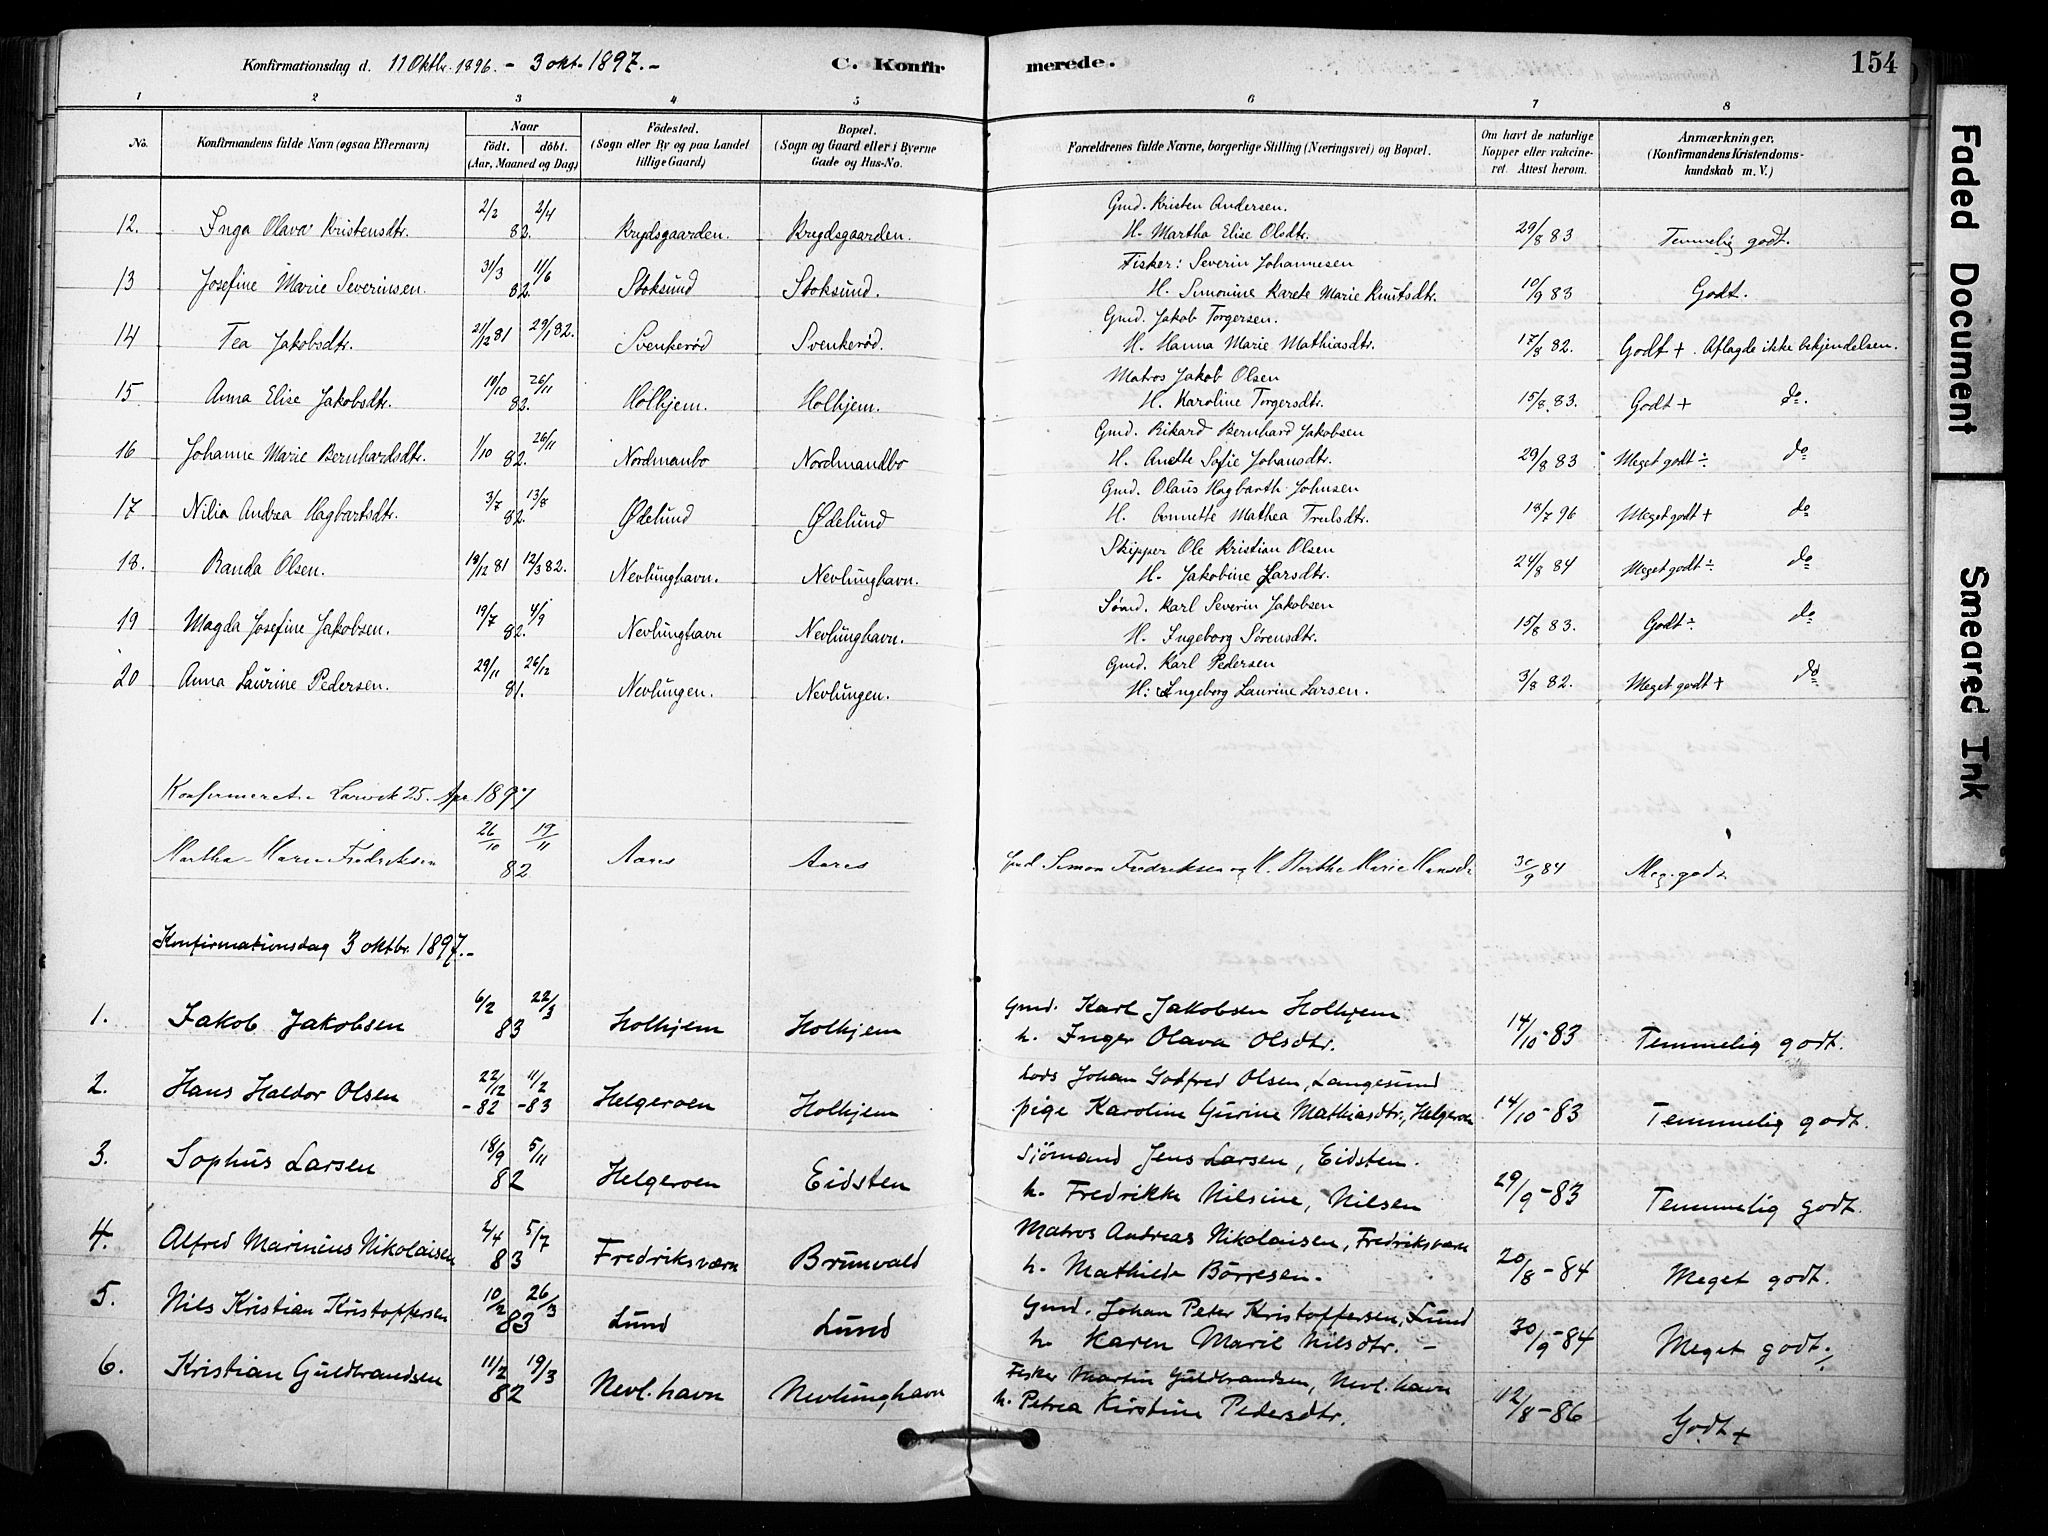 Konfirmationsdag d. 11 Oktbr. 1896. - 3 okt. 1897. -
C. Konfirmerede.
154
1 2 3 4 5 6 7 8
No. Konfirmandens fulde Navn (ogsaa Efternavn) Naar födt. döbt. (Aar, Maaned og Dag) Födested. (Sogn eller By og paa Landet tillige Gaard) Bopæl. (Sogn og Gaard eller i Byerne Gade og Hus-No. Forældrenes fulde Navne, borgerlige Stilling (Næringsvei) og Bopæl. Om havt de naturlige Kopper eller vakcineret. Attest herom. Anmærkninger. (Konfirmandens Kristendomskundskab m. V.)
12. Inga Olava Kristensdtr. 2/2 2/4 82. Krydsgaarden. Krydsgaarden. Gmd. Kristen Andersen. H. Martha Elise Olsdtr. 29/8 83 Temmelig godt.
13 Josefine Marie Severinsen 31/3 11/6 82. Stoksund Stoksund. Fisker: Severin Johannesen H. Simonine Karete Marie Knutsdtr. 10/9 83 Godt.
14 Tea Jakobsdtr. 21/12 81 29/1 82. Svenkerød Svenkerød. Gmd. Jakob Torgersen. H. Hanna Marie Mathiasdtr. 17/8 82. Godt + Aflagde ikke bekjendelsen.
15 Anna Elise Jakobsdtr. 10/10 26/11 82. Holhjem. Holhjem. Matros Jakob Olsen H. Karoline Torgersdtr. 15/8 83. Godt + do.
16 Johanne Marie Bernhardsdtr. 1/10 26/11 82. Nordmanbo Nordmandbo Gmd. Rikard Bernhard Jakobsen H. Anette Sofie Johansdtr. 29/8 83 Meget godt ÷ do
17 Nilia Andrea Hagbartsdtr. 3/7 13/8 82. Ødelund Ødelund Gmd. Olaus Hagbarth Johnsen H. Annette Mathea Trulsdtr. 18/7 96 Meget godt + do
18. Randa Olsen. 18/12 81 12/3 82. Nevlunghavn. Nevlunghavn. Skipper Ole Kristian Olsen H. Jakobine Larsdtr. 24/8 84 Meget godt ÷ do
19 Magda Josefine Jakobsen. 19/7 4/9 82. Nevlunghavn Nevlunghavn. Sømd. Karl Severin Jakobsen H. Ingeborg Sørensdtr. 15/8 83. Godt ÷ do
20 Anna Laurine Pedersen. 29/11 26/12 81. Nevlungen. Nevlungen. Gmd. Karl Pedersen H: Ingeborg Laurine Larsen. 3/8 82. Meget godt + do
Konfirmeret i Larvik 25. Apr 1897
Martha Marie Fredriksen 26/10 19/11 82 Aares Aares Gmd. Simon Fredriksen og H. Berthe Marie Hansdr 30/9 84 Meg. godt
Konfirmationsdag 3 oktbr. 1897. -
1. Jakob Jakobsen 6/2 22/3 83 Holhjem Holhjem Gmd. Karl Jakobsen Holhjem h. Inger Olava Olsdtr. 14/10 - 83 Temmelig godt.
2. Hans Haldor Olsen 22/12 - 82 11/2 - 83 Helgeroen Holhjem Lods Johan Godfred Olsen, Langesund pige Karoline Gurine Mathiasdtr, Helgeroen 14/10 - 83 Temmelig godt.
3. Sophus Larsen 18/9 5/11 82 Helgeroen Eidsten Sjömand Jens Larsen, Eidsten. h. Fredrikke Nilsine, Nilsen 29/9 - 83 Temmelig godt.
4. Alfred Marinius Nikolaisen 2/4 5/7 83 Fredriksværn Brunvald Matros Andreas Nikolaisen, Fredriksværn h. Mathilde Börresen. 20/8 - 84 Meget godt.
5. Nils Kristian Kristoffersen 10/2 26/3 83 Lund Lund Gmd. Johan Peter Kristoffersen, Lund h. Karen Marie Nilsdtr. - 30/9 - 84 Meget godt ÷
6. Kristian Guldbrandsen 11/2 19/3 82 Nevl. havn Nevlunghavn Fisker Martin Guldbrandsen, Nevl. havn h. Petrea Kirstine Pedersdtr. 12/8 - 86 Godt +
Faded Document
Smeared Ink